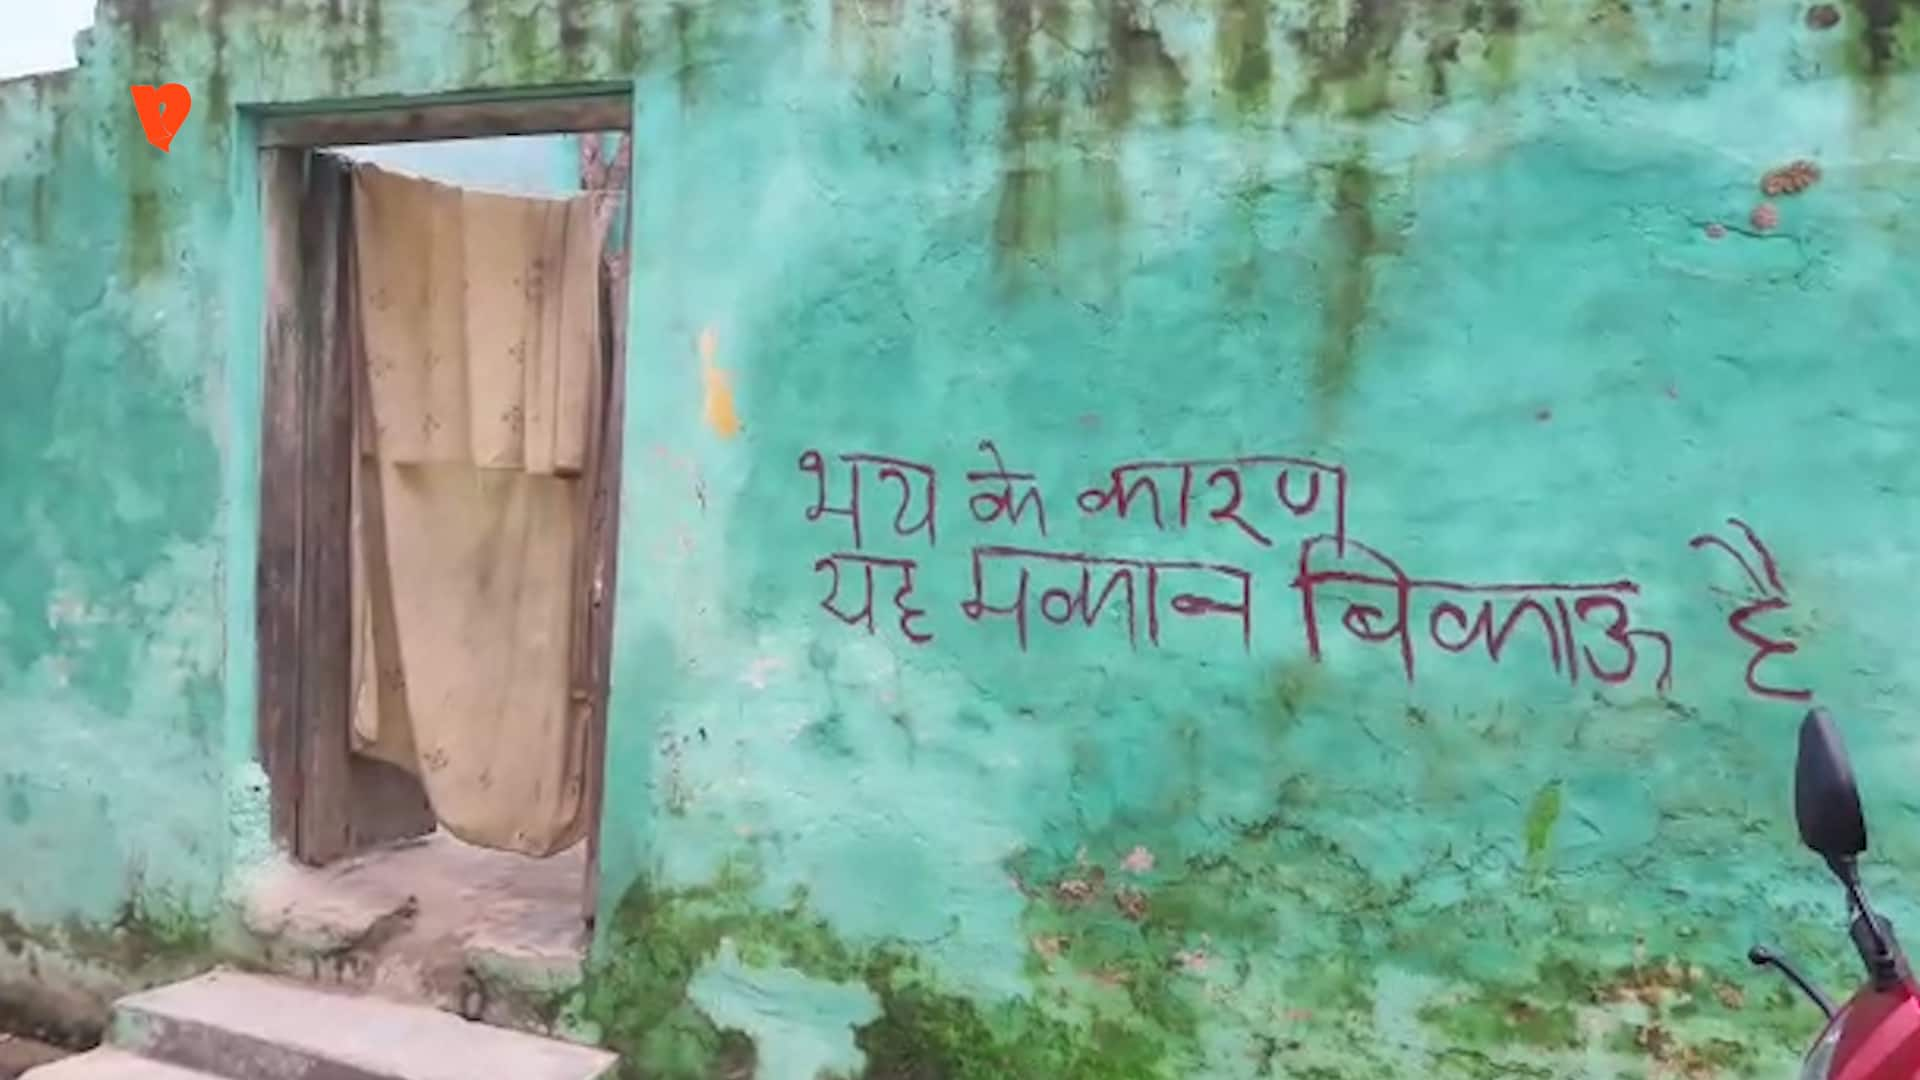 भय के कारण
यह मकान बिकाऊ है